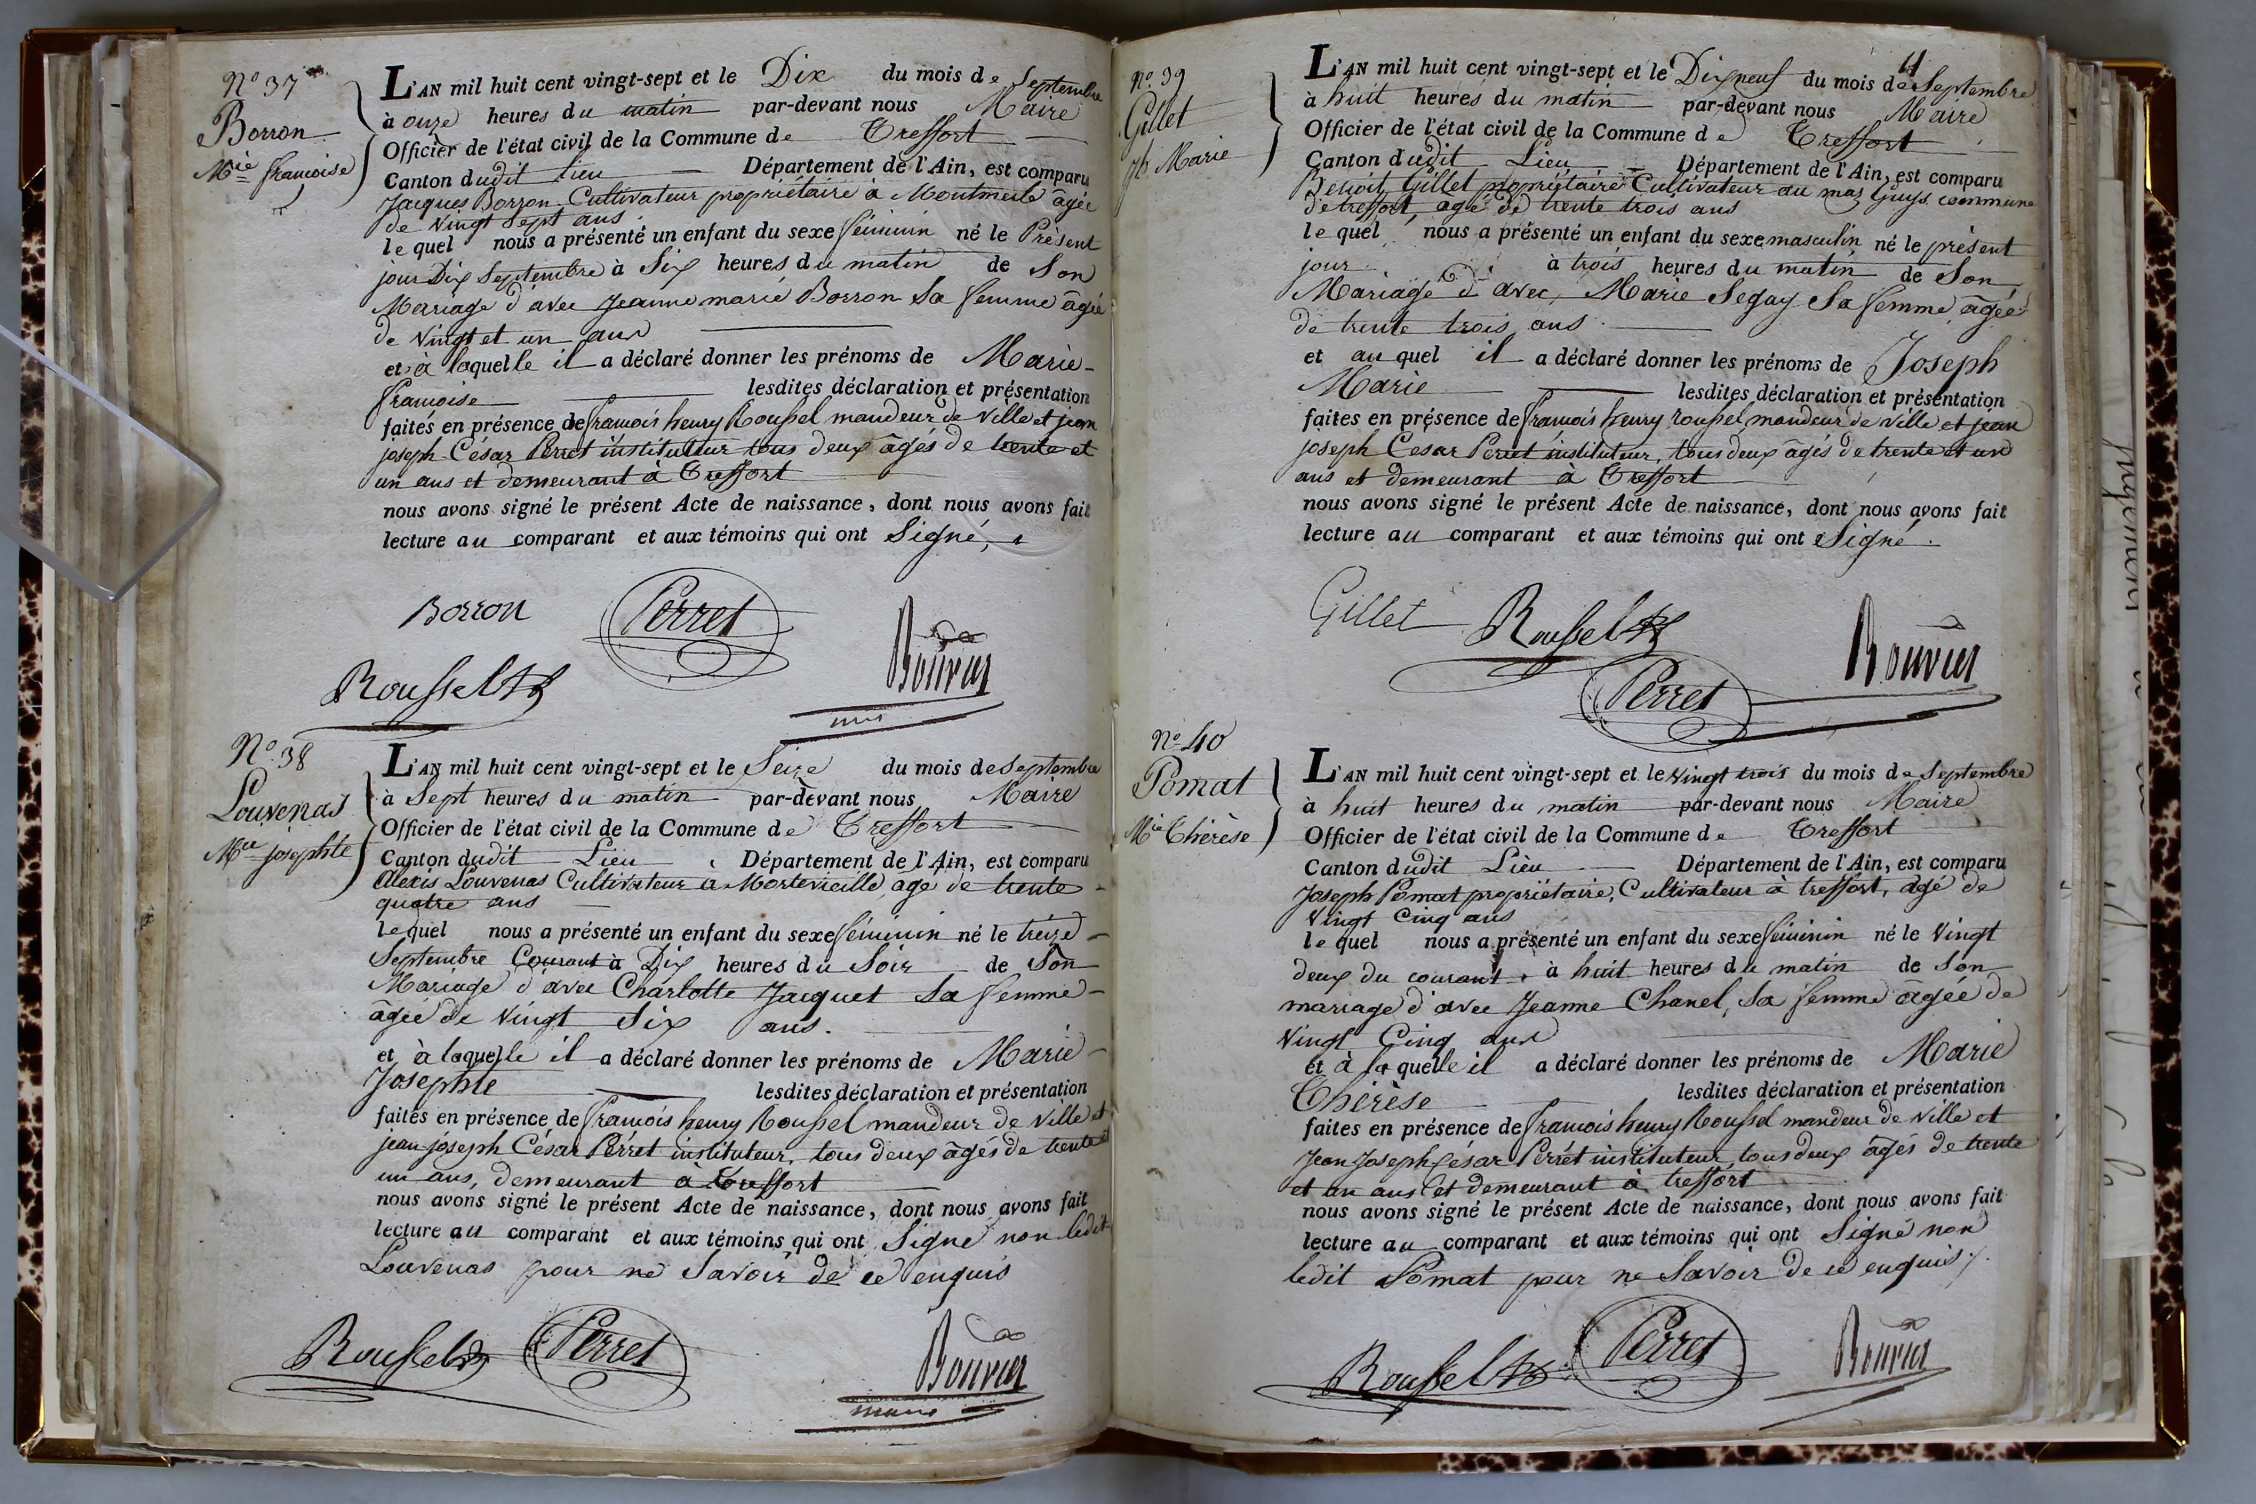 Nº 37
Borron
Mie francoise
L'AN mil huit cent vingt-sept et le Dix du mois de Septembre
à onze heures du matin par-devant nous Maire
Officier de l'état civil de la Commune de Treffort
Canton dudit lieu Département de l'Ain, est comparu
Jacques Borron Cultivateur propriétaire à Montmerle âgée
de Vingt Sept ans.
le quel nous a présenté un enfant du sexe féminin né le Présent
jour Dix Septembre à Six heures du matin de Son
Mariage d'avec Jeanne marie Borron Sa femme âgée
de Vingt et un ans
et à laquelle il a déclaré donner les prénoms de Marie
francoise lesdites déclaration et présentation
faites en présence de francois henry Roussel mandeur de Ville et jean
joseph César Perret instituteur tous deux âgés de trente et
un ans et demeurant à Treffort
nous avons signé le présent Acte de naissance, dont nous avons fait
lecture au comparant et aux témoins qui ont Signé,
Borron Perret
Rousselth Bouvier
Nº 38
Louvenas
Mie josephte
L'AN mil huit cent vingt-sept et le Seize du mois de Septembre
à Sept heures du matin par-devant nous Maire
Officier de l'état civil de la Commune de Treffort
Canton dudit Lieu Département de l'Ain, est comparu
Alexis Louvenas Cultivateur à Mortevieille, âgé de trente
quatre ans
lequel nous a présenté un enfant du sexe féminin né le treize
Septembre Courant à Dix heures du Soir de Son
Mariage d'avec Charlotte Jacquet Sa femme
âgée de Vingt Six ans.
et à laquelle il a déclaré donner les prénoms de Marie
Josephte lesdites déclaration et présentation
faites en présence de francois henry Roussel mandeur de Ville et
jean joseph César Perret instituteur, tous deux âgés de trente et
un ans, demeurant à Treffort
nous avons signé le présent Acte de naissance, dont nous avons fait
lecture au comparant et aux témoins qui ont Signé non ledit
Louvenas pour ne Savoir de ce enquis
Roussel Perret Bouvier
maire
Nº 39
Gillet
jh Marie
L'AN mil huit cent vingt-sept et le Dix neuf du mois de Septembre
à huit heures du matin par-devant nous Maire
Officier de l'état civil de la Commune de Treffort
Canton dudit Lieu Département de l'Ain, est comparu
Benoit Gillet propriétaire Cultivateur au mas Guys commune
de treffort, agé de trente trois ans
le quel nous a présenté un enfant du sexe masculin né le présent
jour à trois heures du matin de Son
Mariage d'avec Marie Segay Sa femme âgée
de trente trois ans.
et au quel il a déclaré donner les prénoms de Joseph
Marie lesdites déclaration et présentation
faites en présence de francois henry roussel mandeur de Ville et jean
joseph Cesar Perret instituteur, tous deux âgés de trente et un
ans et demeurant à Treffort
nous avons signé le présent Acte de naissance, dont nous avons fait
lecture au comparant et aux témoins qui ont Signé.
Gillet Roussel Bouvier
Perret
Nº 40
Pomat
Mie Thérèse
L'AN mil huit cent vingt-sept et le Vingt trois du mois de Septembre
à huit heures du matin par-devant nous Maire
Officier de l'état civil de la Commune de Treffort
Canton dudit Lieu Département de l'Ain, est comparu
Joseph Pomat propriétaire, Cultivateur à treffort, agé de
Vingt Cinq ans
le quel nous a présenté un enfant du sexe féminin né le Vingt
deux du courant, à huit heures du matin de Son
mariage d'avec Jeanne Chanel, Sa femme âgée de
Vingt Cinq ans
et à la quelle il a déclaré donner les prénoms de Marie
Thérèse lesdites déclaration et présentation
faites en présence de francois henry Roussel mandeur de Ville et
Jean Joseph César Perret instituteur, tous deux âgés de trente
et un ans et demeurant à treffort
nous avons signé le présent Acte de naissance, dont nous avons fait
lecture au comparant et aux témoins qui ont Signé non
ledit Pomat pour ne Savoir de ce enquis /.
Roussel Perret Bouvier